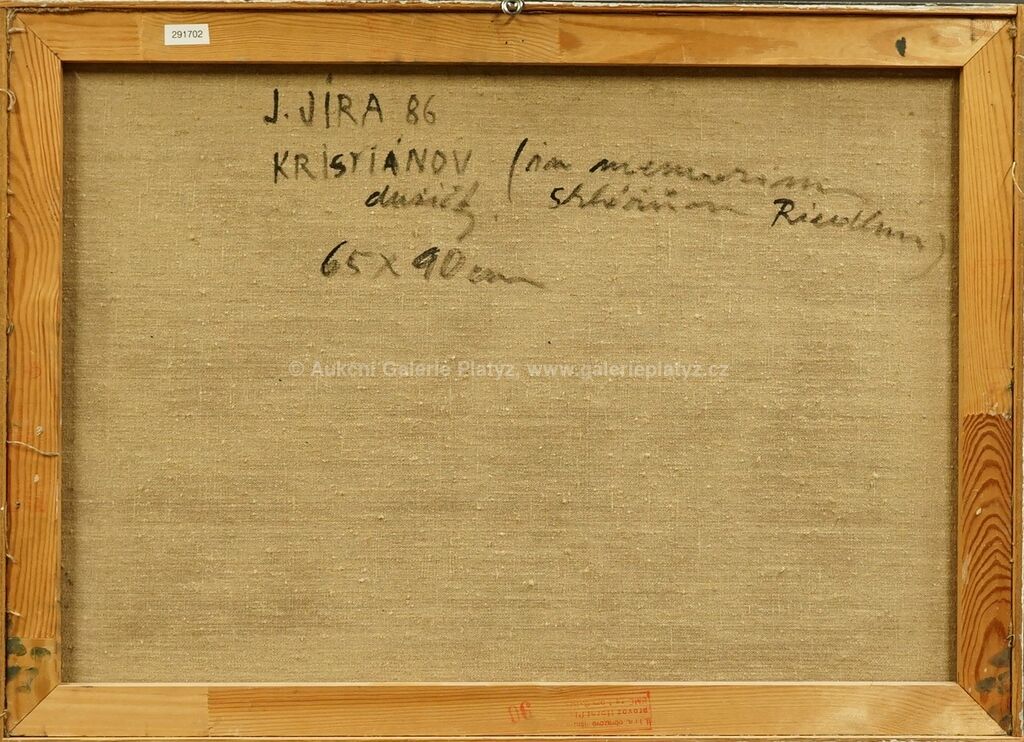 291702
J. JÍRA 86
KRISTIÁNOV (in memoriam
dušičky. sklářům Riedlům)
65 x 90 cm
© Aukční Galerie Platýz, www.galerieplatyz.cz
90